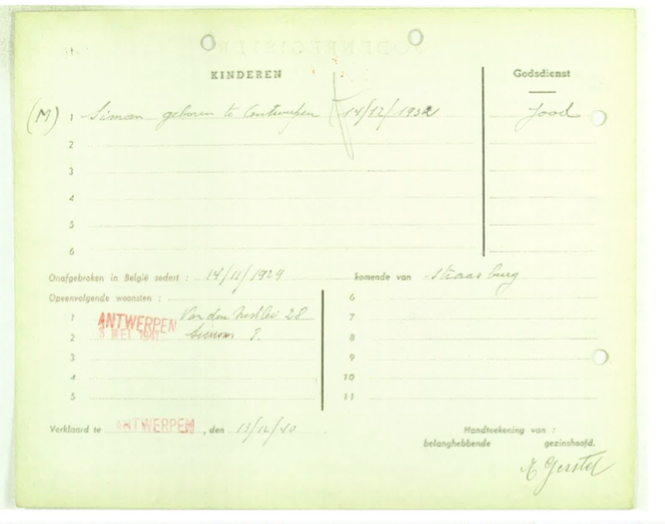 KINDEREN
Godsdienst
(M) 1 Simon geboren te Antwerpen 14/12/1932 Jood
2
3
4
5
6
Onafgebroken in België sedert : 14/11/1929 komende van Straasburg
Opeenvolgende woonsten : 6
1 Van den Nestlei 28 7
ANTWERPEN
3 MEI 1941
2 Simons 8
3 9
4 10
5 11
Verklaard te ANTWERPEN , den 13/12/40
Handteekening van :
belanghebbende gezinshoofd.
Gerstel